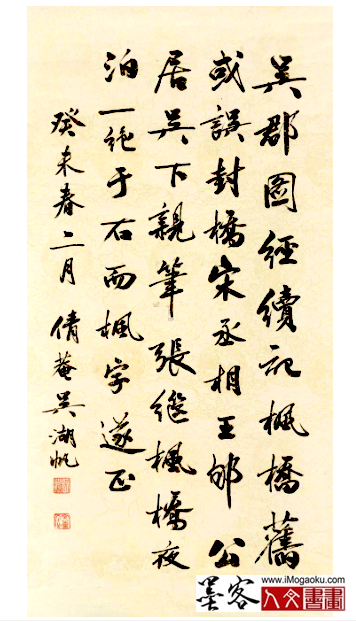 吳郡圖經續記楓橋舊
或誤封橋宋丞相王郇公
居吳下親筆張繼楓橋夜
泊一絕于石而楓字遂正
癸未春二月倩菴吳湖帆
墨客
www.iMogaoku.com
人文書畫